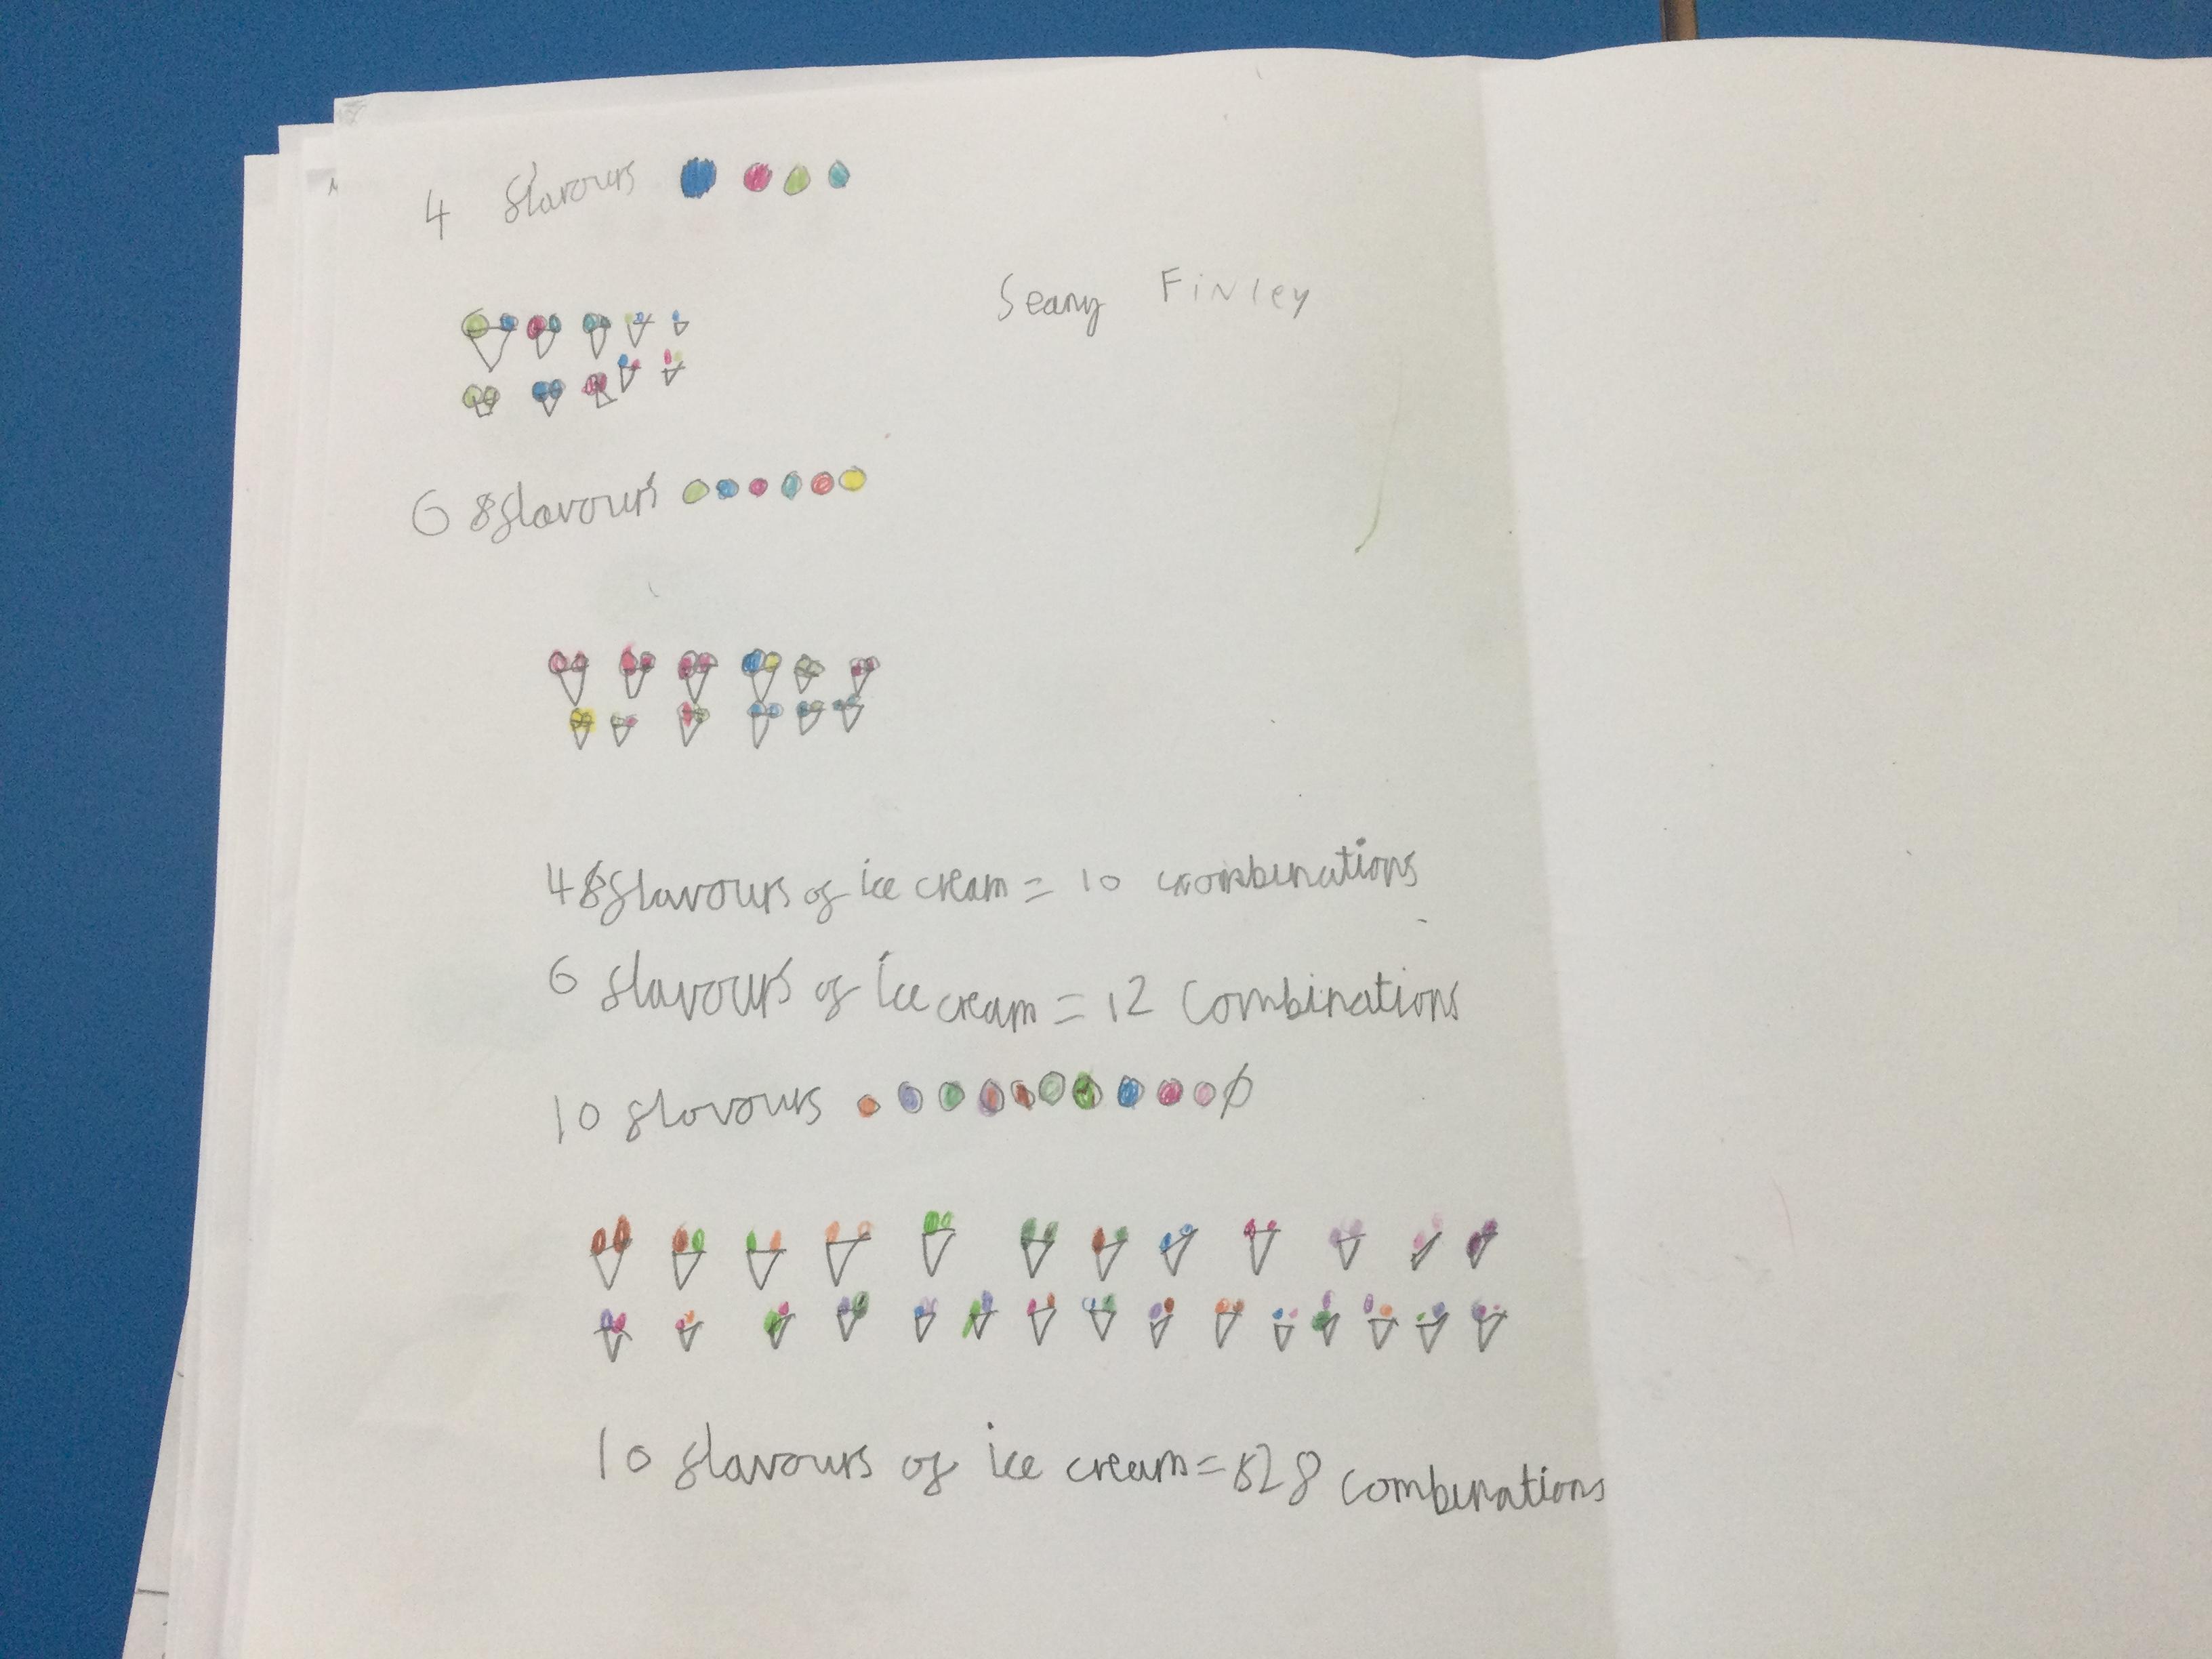 4 flavours
Seany Finley
6 flavours
4 flavours of ice cream = 10 combinations
6 flavours of ice cream = 12 combinations
10 flavours
10 flavours of ice cream = 28 combinations